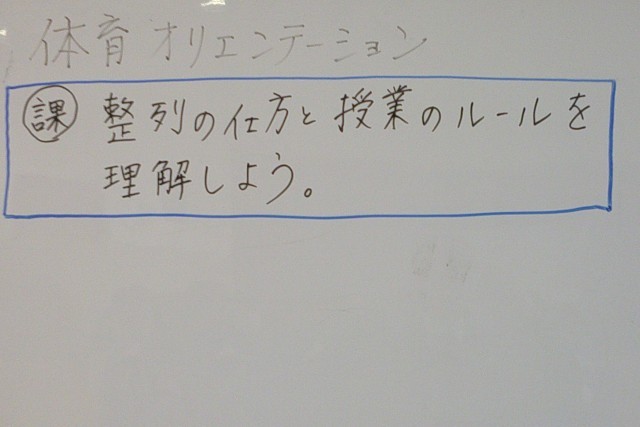 体育 オリエンテーション
課 整列の仕方と授業のルールを
理解しよう。